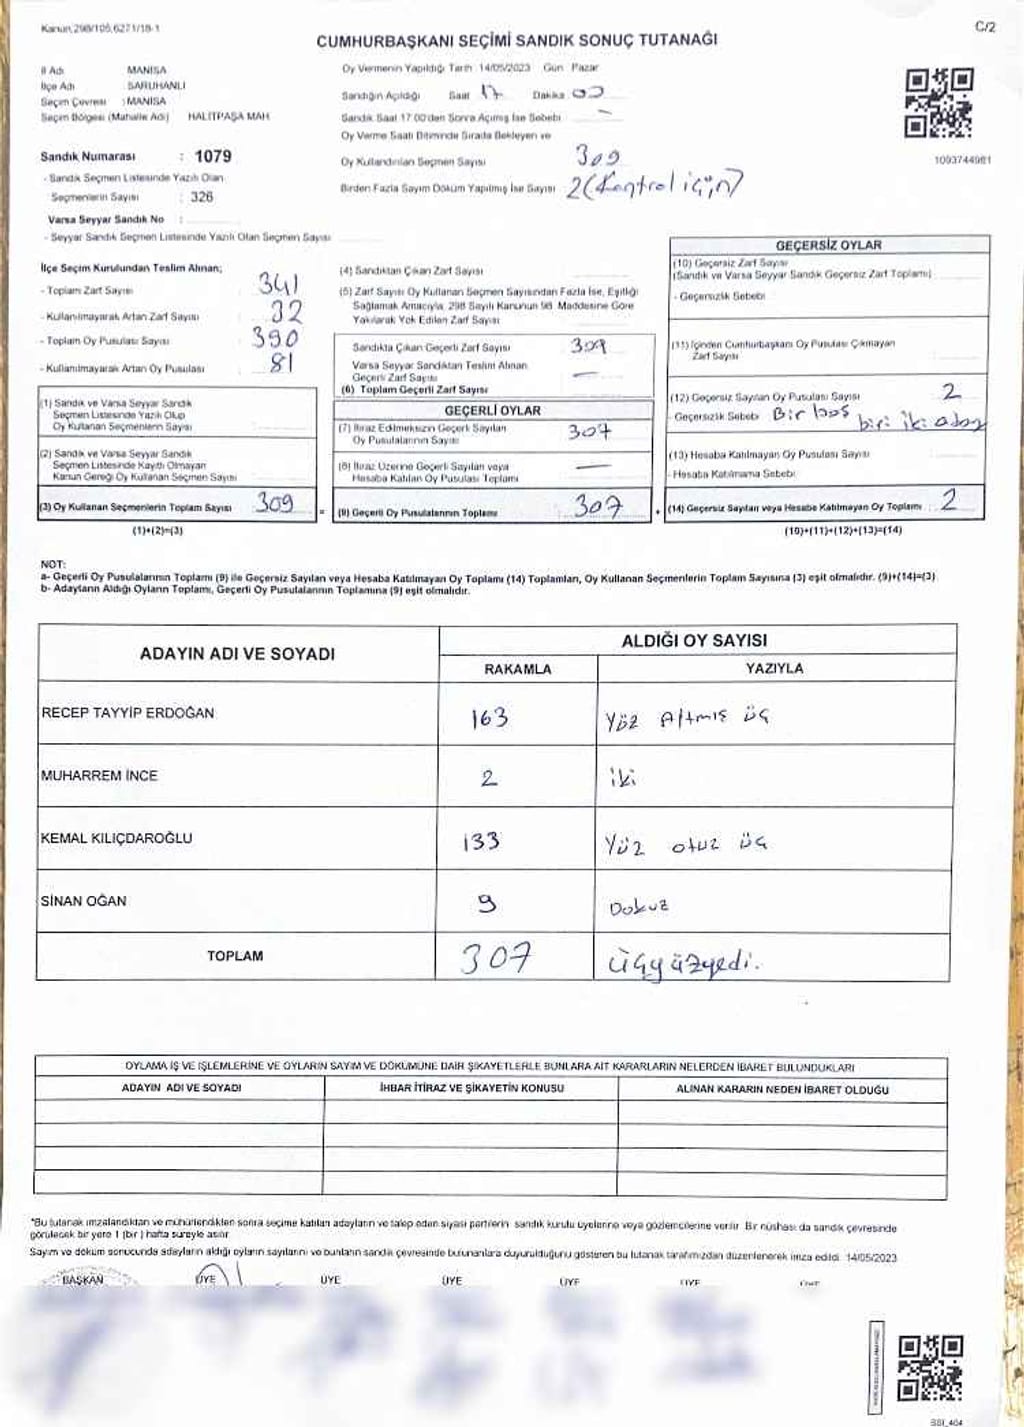 Kanun,298/105,6271/18-1
C/2
CUMHURBAŞKANI SEÇİMİ SANDIK SONUÇ TUTANAĞI
İl Adı MANİSA
İlçe Adı SARUHANLI
Seçim Çevresi : MANİSA
Seçim Bölgesi (Mahalle Adı) HALİTPAŞA MAH.
Sandık Numarası : 1079
- Sandık Seçmen Listesinde Yazılı Olan
Seçmenlerin Sayısı : 326
Varsa Seyyar Sandık No :
- Seyyar Sandık Seçmen Listesinde Yazılı Olan Seçmen Sayısı
Oy Vermenin Yapıldığı Tarih 14/05/2023 Gün Pazar
Sandığın Açıldığı Saat 17 Dakika 00
Sandık Saat 17:00'den Sonra Açılmış İse Sebebi —
Oy Verme Saati Bitiminde Sırada Bekleyen ve
Oy Kullandırılan Seçmen Sayısı 309
Birden Fazla Sayım Döküm Yapılmış İse Sayısı 2 (Kontrol için)
1093744981
İlçe Seçim Kurulundan Teslim Alınan;
- Toplam Zarf Sayısı 341
- Kullanılmayarak Artan Zarf Sayısı : 32
- Toplam Oy Pusulası Sayısı : 390
- Kullanılmayarak Artan Oy Pusulası : 81
(1) Sandık ve Varsa Seyyar Sandık
Seçmen Listesinde Yazılı Olup
Oy Kullanan Seçmenlerin Sayısı
(2) Sandık ve Varsa Seyyar Sandık
Seçmen Listesinde Kayıtlı Olmayan
Kanun Gereği Oy Kullanan Seçmen Sayısı
(3) Oy Kullanan Seçmenlerin Toplam Sayısı 309
(1)+(2)=(3)
(4) Sandıktan Çıkan Zarf Sayısı
(5) Zarf Sayısı Oy Kullanan Seçmen Sayısından Fazla İse, Eşitliği
Sağlamak Amacıyla, 298 Sayılı Kanunun 98. Maddesine Göre
Yakılarak Yok Edilen Zarf Sayısı
Sandıkta Çıkan Geçerli Zarf Sayısı 309
Varsa Seyyar Sandıktan Teslim Alınan
Geçerli Zarf Sayısı —
(6) Toplam Geçerli Zarf Sayısı
GEÇERLİ OYLAR
(7) İtiraz Edilmeksizin Geçerli Sayılan
Oy Pusulalarının Sayısı 307
(8) İtiraz Üzerine Geçerli Sayılan veya
Hesaba Katılan Oy Pusulası Toplamı —
= (9) Geçerli Oy Pusulalarının Toplamı 307
GEÇERSİZ OYLAR
(10) Geçersiz Zarf Sayısı
(Sandık ve Varsa Seyyar Sandık Geçersiz Zarf Toplamı)
- Geçersizlik Sebebi
(11) İçinden Cumhurbaşkanı Oy Pusulası Çıkmayan
Zarf Sayısı
(12) Geçersiz Sayılan Oy Pusulası Sayısı 2
- Geçersizlik Sebebi Bir boş
biri iki aday
(13) Hesaba Katılmayan Oy Pusulası Sayısı
- Hesaba Katılmama Sebebi
+ (14) Geçersiz Sayılan veya Hesaba Katılmayan Oy Toplamı : 2
(10)+(11)+(12)+(13)=(14)
NOT:
a- Geçerli Oy Pusulalarının Toplamı (9) ile Geçersiz Sayılan veya Hesaba Katılmayan Oy Toplamı (14) Toplamları, Oy Kullanan Seçmenlerin Toplam Sayısına (3) eşit olmalıdır. (9)+(14)=(3)
b- Adayların Aldığı Oyların Toplamı, Geçerli Oy Pusulalarının Toplamına (9) eşit olmalıdır.
ADAYIN ADI VE SOYADI
ALDIĞI OY SAYISI
RAKAMLA YAZIYLA
RECEP TAYYİP ERDOĞAN 163 Yüz Altmış üç
MUHARREM İNCE 2 iki
KEMAL KILIÇDAROĞLU 133 Yüz otuz üç
SİNAN OĞAN 9 Dokuz
TOPLAM 307 üçyüzyedi.
OYLAMA İŞ VE İŞLEMLERİNE VE OYLARIN SAYIM VE DÖKÜMÜNE DAİR ŞİKAYETLERLE BUNLARA AİT KARARLARIN NELERDEN İBARET BULUNDUKLARI
ADAYIN ADI VE SOYADI İHBAR İTİRAZ VE ŞİKAYETİN KONUSU ALINAN KARARIN NEDEN İBARET OLDUĞU
*Bu tutanak imzalandıktan ve mühürlendikten sonra seçime katılan adayların ve talep eden siyasi partilerin sandık kurulu üyelerine veya gözlemcilerine verilir. Bir nüshası da sandık çevresinde
görülecek bir yere 1 (bir) hafta süreyle asılır.
Sayım ve döküm sonucunda adayların aldığı oyların sayılarını ve bunların sandık çevresinde bulunanlara duyurulduğunu gösteren bu tutanak tarafımızdan düzenlenerek imza edildi. 14/05/2023
BAŞKAN ÜYE ÜYE ÜYE ÜYE ÜYE ÜYE